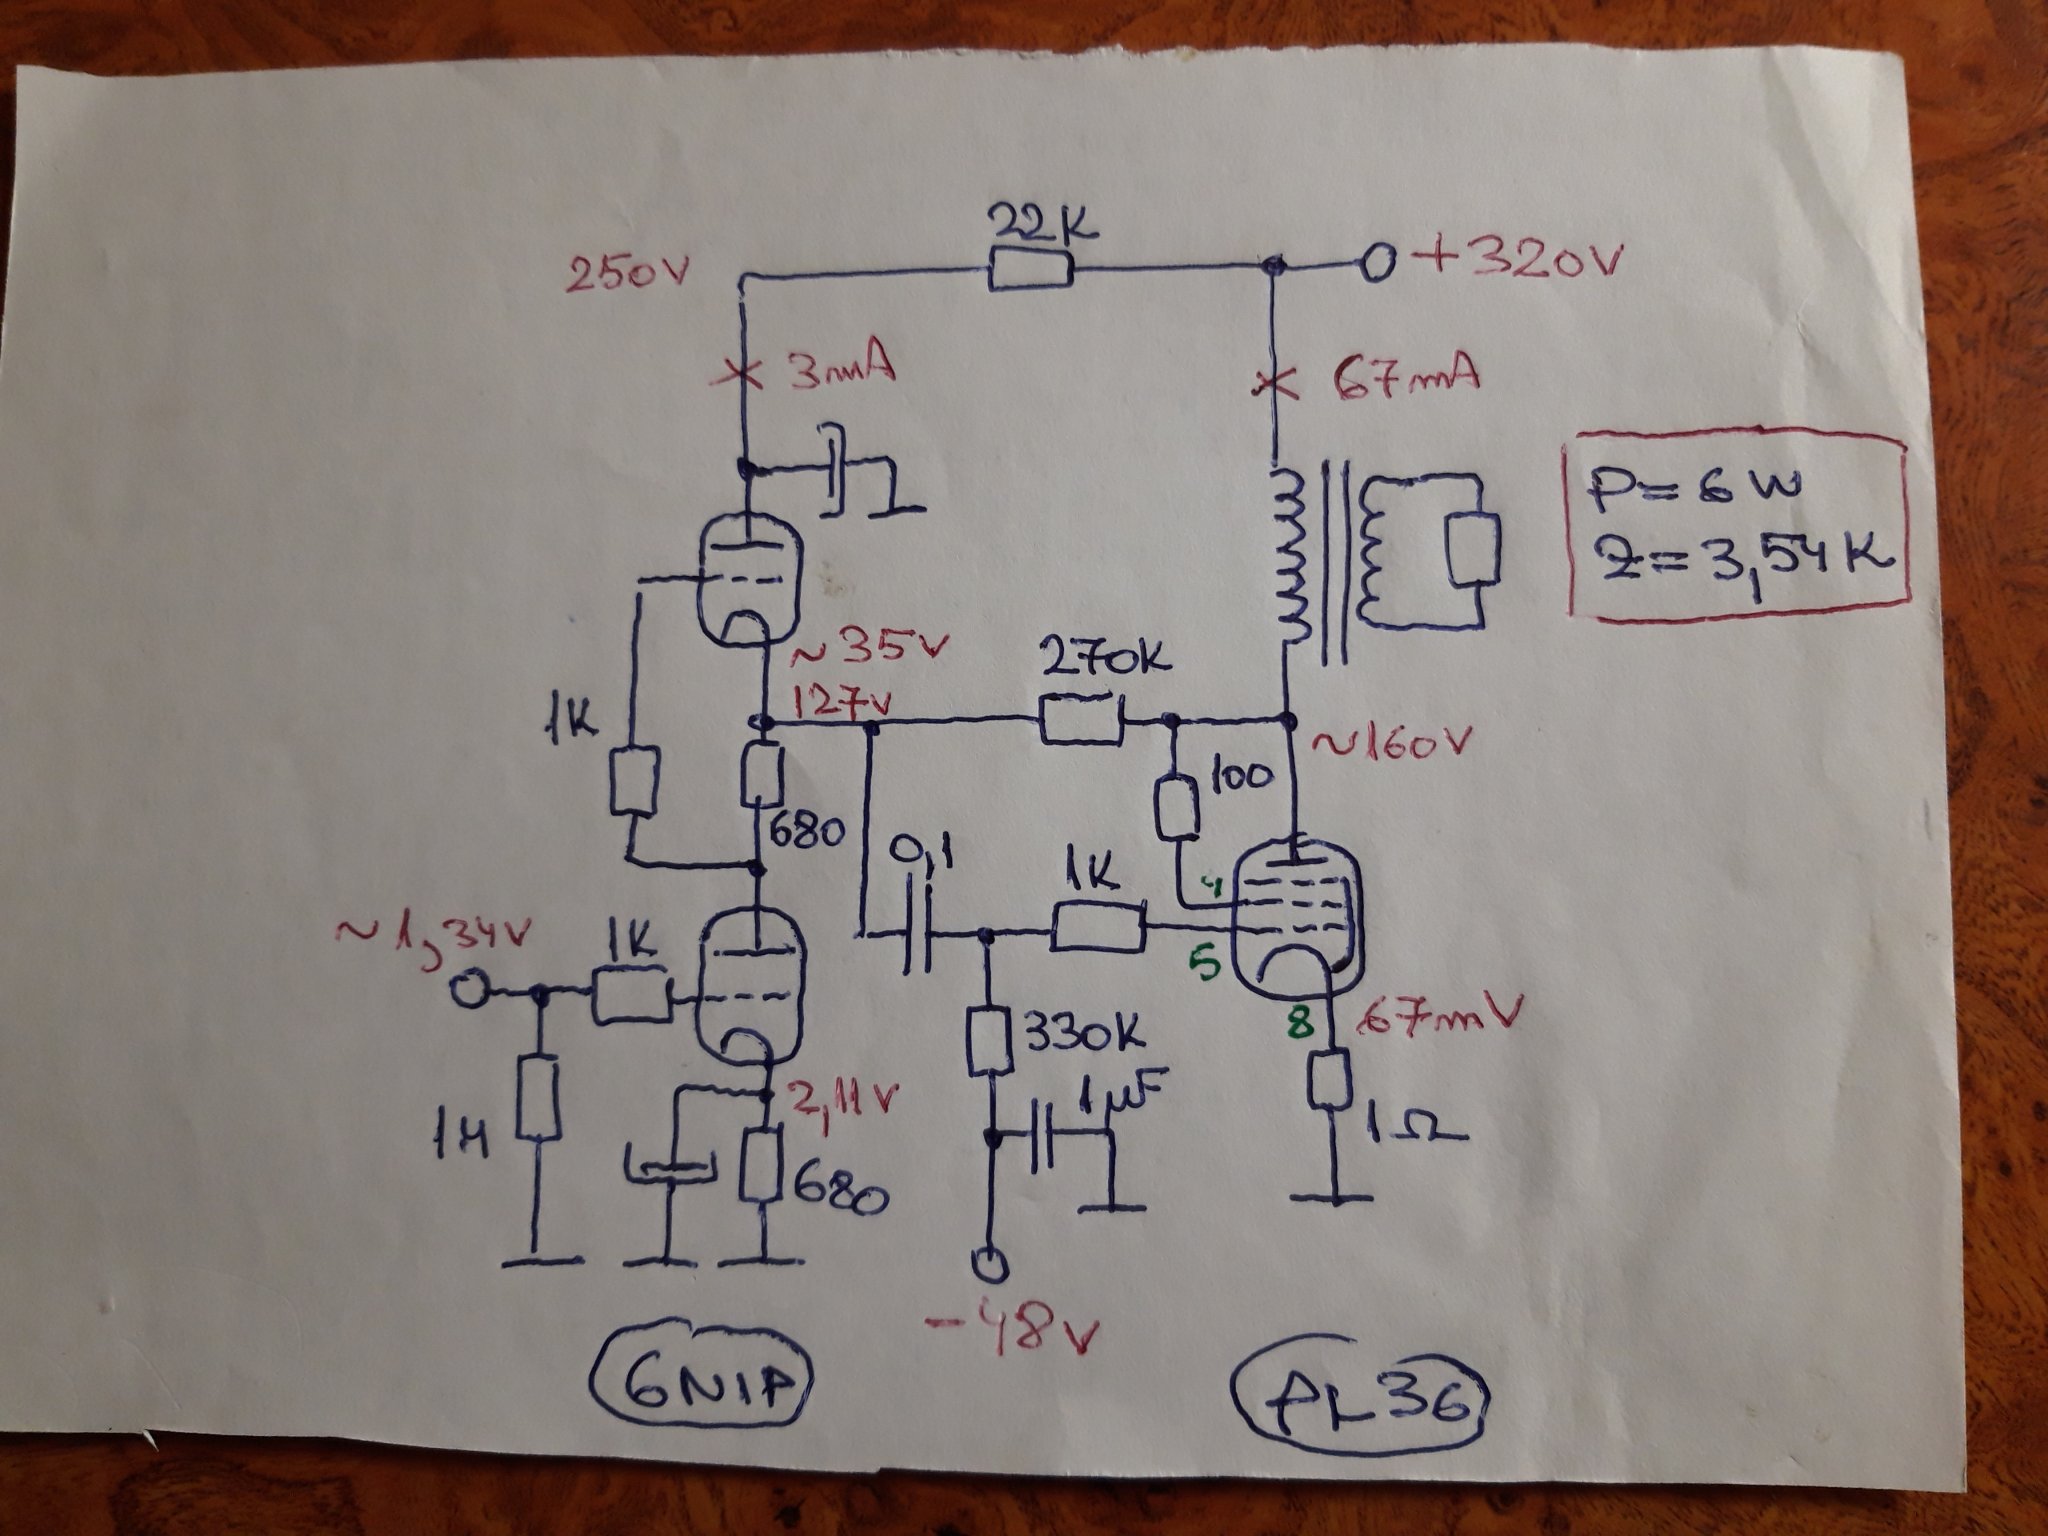 22K
250V
+320V
3mA
67mA
P= 6W
Z= 3,54K
~35V
270K
127V
1K
~160V
100
680
0,1
1K
4
~1,34V
1K
5
8
67mV
330K
1μF
2,11V
1M
1Ω
680
-48V
6N1P
PL36